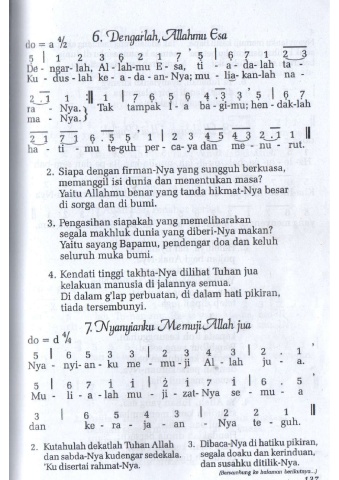 6. Dengarlah, Allahmu Esa
do = a 4/2
5 | 1 2 3 6 2 1 7 ' 5 | 6 7 1 2 3
De - ngar- lah, Al - lah-mu E - sa, ti - a - da- lah ta -
Ku - dus - lah ke - a - da - an- Nya; mu - lia- kan-lah na -
2 . 1 1 :|| 1 | 7 6 5 6 4 . 3 3 ' 5 | 6 7
ra - Nya. } Tak tampak I - a ba - gi-mu; hen - dak-lah
ma - Nya. }
2 1 7 1 6 . 5 5 ' 1 | 2 3 4 5 4 3 2 . 1 1 ||
ha - ti - mu te-guh per - ca-ya dan me - nu - rut.
2. Siapa dengan firman-Nya yang sungguh berkuasa,
memanggil isi dunia dan menentukan masa?
Yaitu Allahmu benar yang tanda hikmat-Nya besar
di sorga dan di bumi.
3. Pengasihan siapakah yang memeliharakan
segala makhluk dunia yang diberi-Nya makan?
Yaitu sayang Bapamu, pendengar doa dan keluh
seluruh muka bumi.
4. Kendati tinggi takhta-Nya dilihat Tuhan jua
kelakuan manusia di jalannya semua.
Di dalam g'lap perbuatan, di dalam hati pikiran,
tiada tersembunyi.
7. Nyanyianku Memuji Allah jua
do = d 4/4
5 | 6 5 3 3 | 2 3 4 3 | 2 . 1
Nya - nyi- an - ku me - mu - ji Al - lah ju - a.
5 | 6 7 i i | 2 i 7 i | 6 . 5
Mu - li - a - lah mu - ji - zat- Nya se - mu - a
3 | 6 5 4 3 | 2 2 1 ||
dan ke - ra - ja - an - Nya te - guh.
2. Kutahulah dekatlah Tuhan Allah
dan sabda-Nya kudengar sedekala.
'Ku disertai rahmat-Nya.
3. Dibaca-Nya di hatiku pikiran,
segala doaku dan kerinduan,
dan susahku ditilik-Nya.
(Bersambung ke halaman berikutnya...)
137